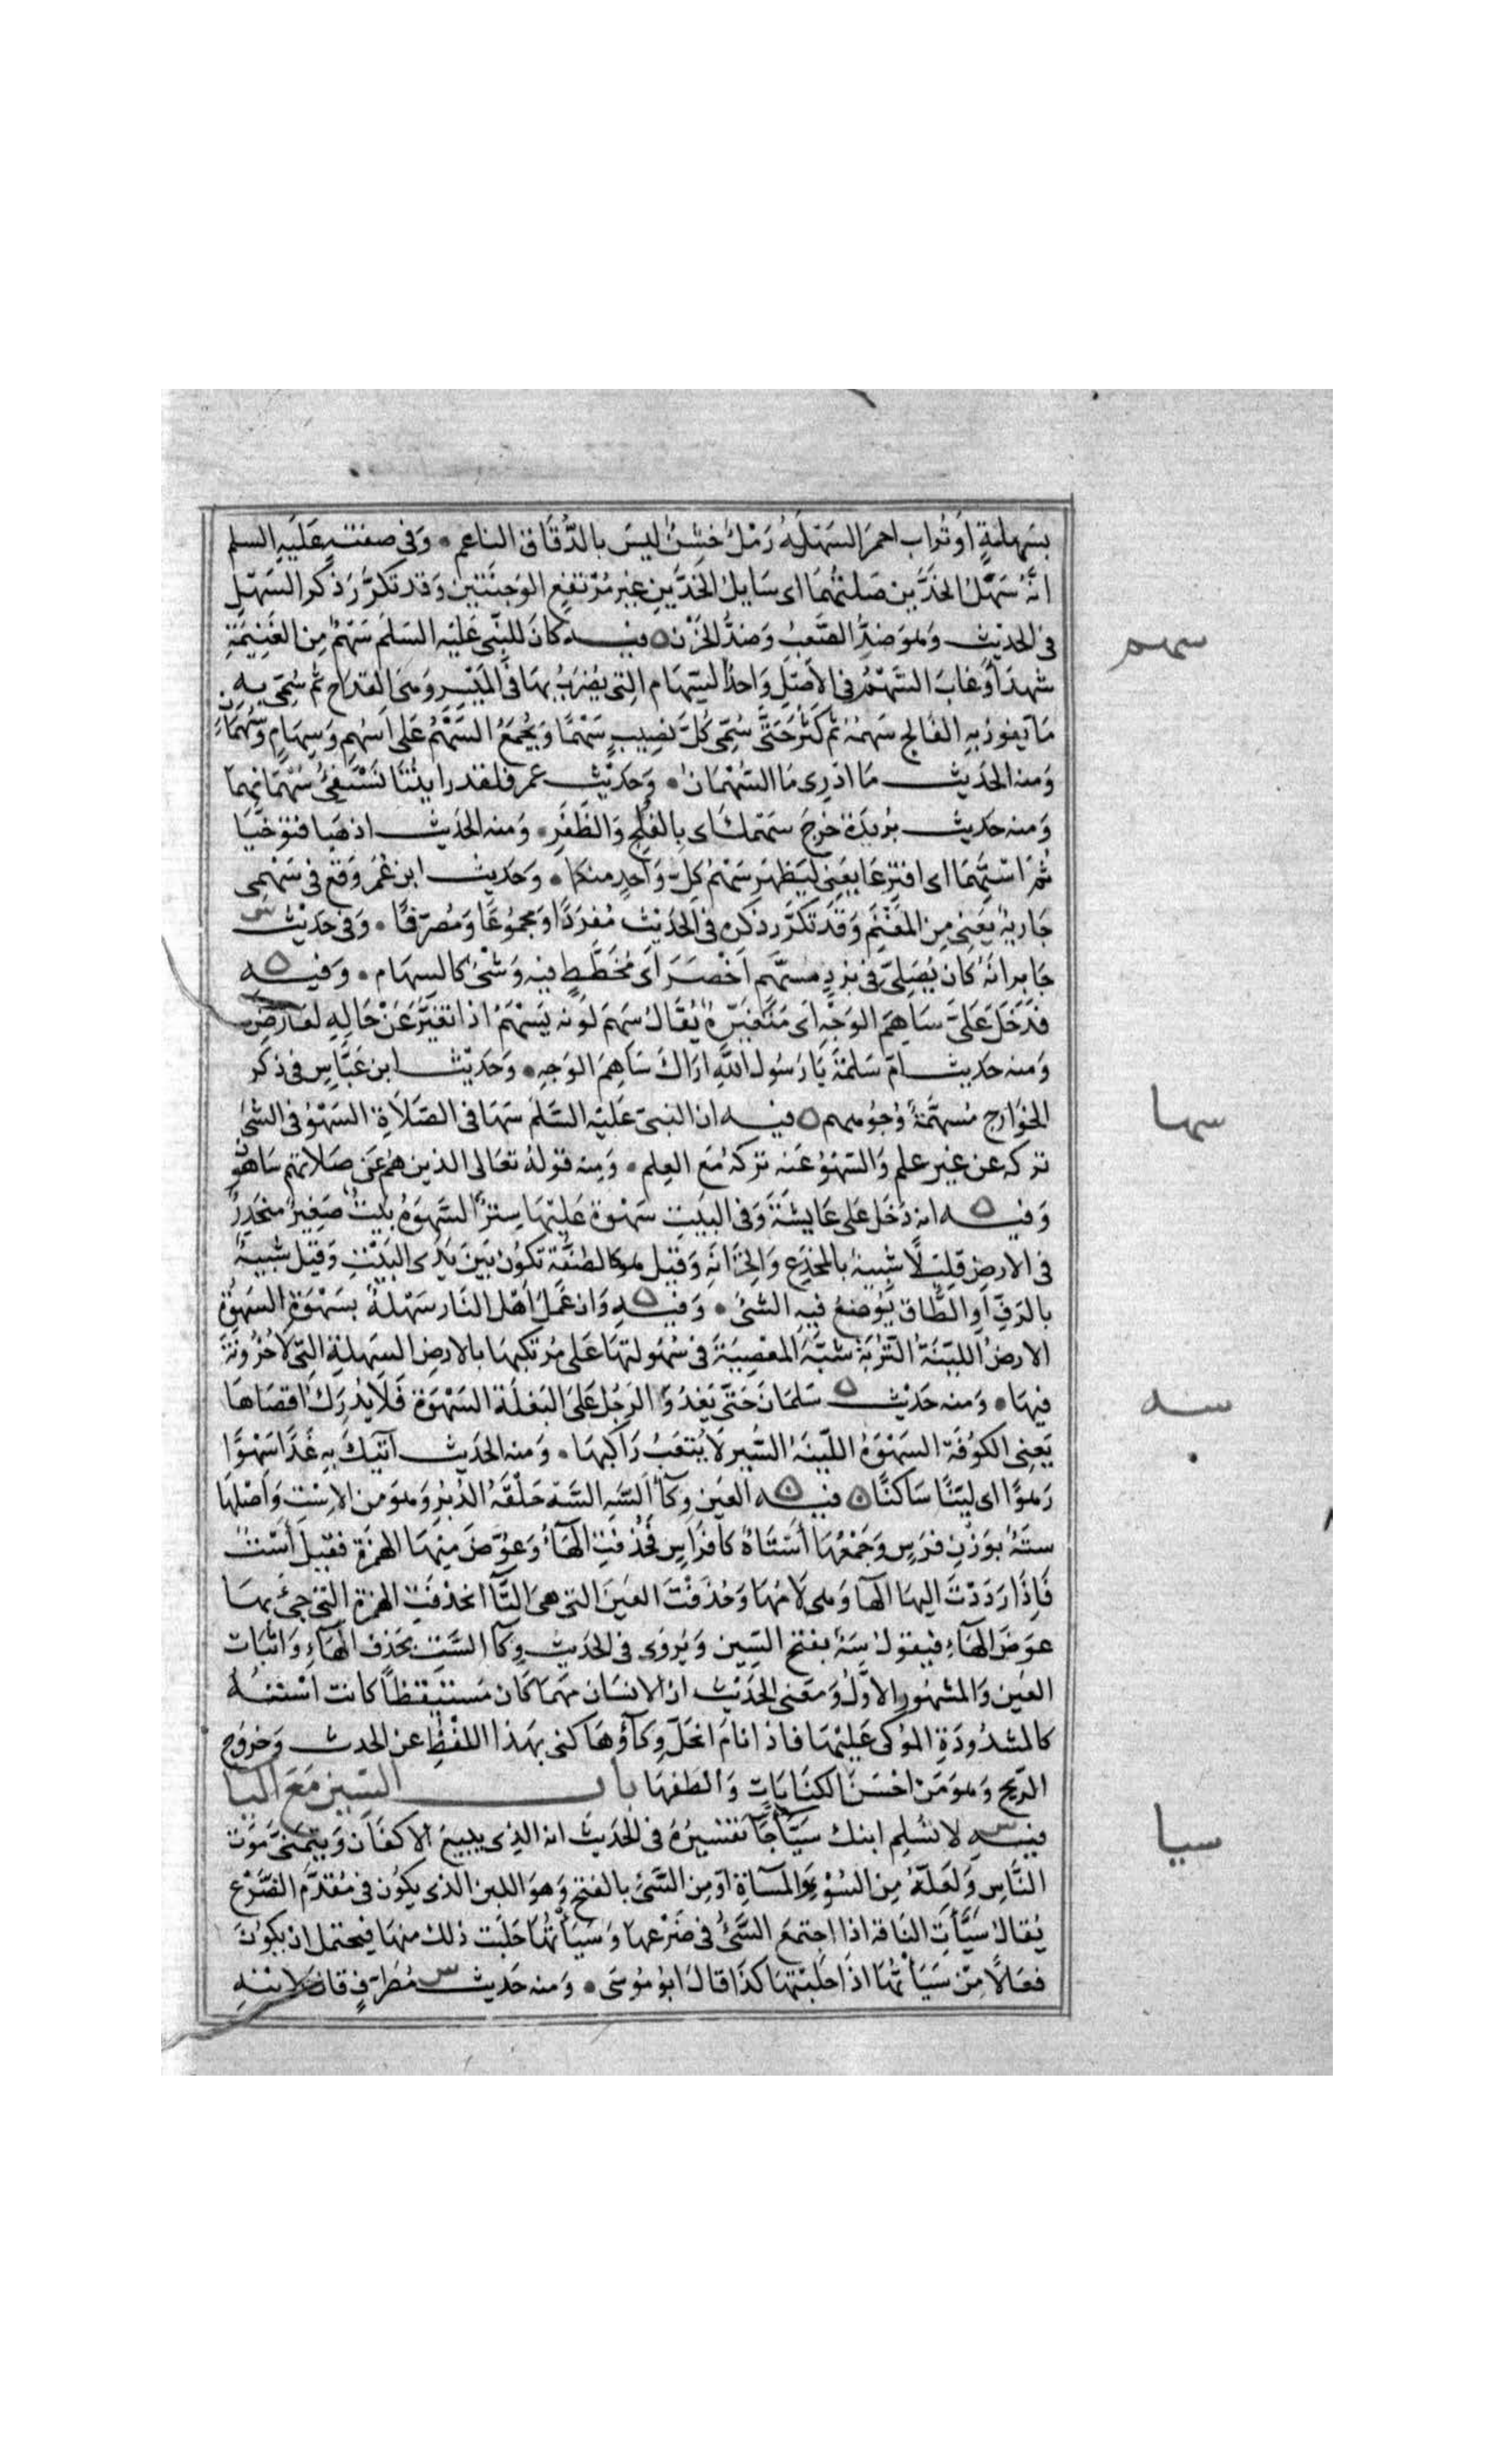 بسَهلةٍ اَو تُراب احمرَ السَهلَةُ رَمْلُ خشنٌ ليسَ بالدُّقاق الناعم ٠ وَفى صفتهِ عَليَهِ السلم
انَّهُ سَهْلُ الخدَّين صَلتُهمَا اى سَايلُ الخدَّينِ غيرُ مُرْتفعِ الوَجنَتين وَقد تكرَّرَ ذكر السَهْلِ
فى الحديث وَهوَ ضدُّ الصَّعبِ وَضدُّ الحَزْن ٥ فيه كانَ للنبّى عَليْه السَلمَ سَهْمٌ مِن الغَنِيمَةِ
شهدَ اَوغابَ السَّهْمُ فى الاَصْلِ وَاحدُ السِّهَام التِى يضْرَبُ بهَا فى المَيْسِرِ وَهىَ القدَاح ثم سُمّىَ بهِ
مَا يفوزُ بهِ الفَالج سَهمُهُ ثم كثُرَ حَتَّى سُمّىَ كُلُّ نصِيبٍ سَهْمًا وَيُجمَعُ السَّهْمُ عَلى اَسْهُمٍ وَسِهَامٍ وَسُهْمَانٍ
وَمنه الحَديث مَا ادْرِى مَا السُّهْمَانُ ٠ وَحَديْث عمر فلقد رايتُنَا نَسْتَفىُ سُهْمَانهمَا
وَمنه حَديث بُريدَة خرجَ سَهمُكَ اى بالفَلْجِ وَالظَفَرِ ٠ وَمنه الحَديث اذهَبا فتوَخَّيَا
ثُمَ اسْتَهِمَا اى اقتَرِعَا يعَنِى ليَظهَرَ سَهْمُ كلِ وَاحدٍ منكما ٠ وَحَديث ابن عُمَرَ وَقعَ فى سَهْمى
جَاريةٌ يَعنِى مِن المَغْنَمِ وَقَد تَكَرَّرَ ذكره فى الحَدَيث مُفرَدًا وَمجمُوعًا وَمُصَرّفًا ٠ وَفى حَديْث
جَابر انَهُ كان يُصَلِى فى بُردٍ مُسَهَّم اَخْضَرَ اَى مُخَطَّطٍ فيه وَشْىٌ كالسهَام ٠ وَفيه
فدَخَلَ عَلىَّ سَاهِمَ الوَجْهِ اى مُتَغيَّرَهُ يُقَالُ سَهمَ لوْنه يَسْهَمُ اذا تغيَّرَ عَنْ حَالِهِ لعَارضٍ
وَمنه حَديث امّ سَلمَةَ يَا رَسُولَ اللهِ ارَاكَ سَاهِمَ الوَجهِ ٠ وَحَديْث ابن عَبَّاسِ فى ذكر
الخوَارج مُسهَّمَةٌ وُجُوههم ٥ فيه ان النبىَ عَليَه السَّلمَ سَهَا فى الصَلَاةِ السَهْوُ فى الشىُ
تركه عن غير علم وَالسَهْوُ عَنه تركهُ مَع العِلم ٠ وَمِنه قولهُ تعَالى الذين هُم عَن صَلاتهم سَاهون
وَفيه انه دَخَل عَلى عَايشَةَ وَفى البَيتِ سَهْوَة عَليْهَا سِترٌ السَّهوَةُ بَيتٌ صَغِيرٌ منحَدِرٌ
فى الارضِ قلِيلًا شبيهٌ بالمخدَعِ وَالخزَانةِ وَقيل هو كالصُفَّة تكونُ بَينَ يدَى البَيْتِ وَقيل شبيهٌ
بالرَفِ اَو الطَّاق يُوضعُ فيهِ الشىُ ٠ وَفيهِ وَان عَمَلَ اَهْل النَار سَهْلةٌ بسَهْوَةٍ السَهوَة
الارضُ الليّنَةُ التُربَة شبَّهَ المعْصِيَةَ فى سُهُولتهَا عَلى مُرْتكبهَا بالارضِ السَهلَةِ التى لَا حُزُونَةَ
فيهَا ٠ وَمنه حَديْث سَلمَانَ حَتّى يَغدُوَ الرَجُلُ عَلى البَغلَة السَهْوَة فَلَا يُدرِك اقصَاهَا
يَعنِى الكوُفَة السَهْوَةُ اللّيّنَةُ السَّيرِ لَا يُتعَبُ رَاكبهَا ٠ وَمنه الحَديث آتيكَ بهِ غَدًا سَهْوًا
رَهوًا اى ليّنًا سَاكنًا ٥ فيه العَين وكآءُ السَّهِ السَّهُ حَلْقَةُ الدُبُرِ وَهوَ من الاِستِ وَاَصْلهَا
سَتَهٌ بوَزْنِ فرَسٍ وَجَمْعُهَا أَستَاهٌ كافرَاسِ فحُذفتِ الهَاءُ وَعُوّضَ مِنهَا الهمزَة فقيل أَسْت
فَاِذَا رَدَدْتَ اليهَا الهَا وَهى لَامُهَا وَحُذفْت العَينَ التى هىَ التَّآ انحذفتِ الهمزة التى جىَ بهَا
عوَضَ الهَآءِ فيقولُ سَهٌ بفتح السّينِ وَيُروَى فى الحَديث وكآ السَّتِ بحَذفِ الهَآءِ وَاثبَات
العَين وَالمشهُور الاَوّلُ وَمَعنى الحَدَيْث ان الانسَان مَهمَا كان مُستَيقظًا كانت اسْتُهُ
كالمشدُودَةِ المُوْكَى عَليْهَا فاذا نامَ انحَلَّ وِكآؤهَا كنى بهَذا اللفْظِ عن الحدث وَخروج
الرّيح وَهوَ مَن احْسَن الكنَايَاتِ وَالطَفهَا باب السّين مَعَ اليا
فيه لا تسْلِم ابنك سَيَّآءً جَآ تفسِيرُهُ فى الحَديث انه الذِى يبيعُ الاكفَانَ وَيتَمنّى مَوْت
النَّاسِ وَلعَلَّهُ مِن السُوْءِ وَالمسَآءَةِ اَو مِن السَّىْءِ بالفتح وَهوَ اللبن الذى يكوُن فى مُقدَّم الضَرْع
يُقالُ سَيَّأَتِ النَاقة اذا اجتمعَ السَّىْءُ فى ضَرْعها وَسَيَّأتُها حَلبَت ذلك منهَا فيحتمل ان يكوُنَ
فعَالًا مِنْ سَيَأتُهَا اذَا حَلبْتهَا كذَا قالَ ابوُ مُوسَى ٠ وَمنه حَديث مُطَرّفٍ قالَ لابْنهِ
سهم
سها
سه
سيا